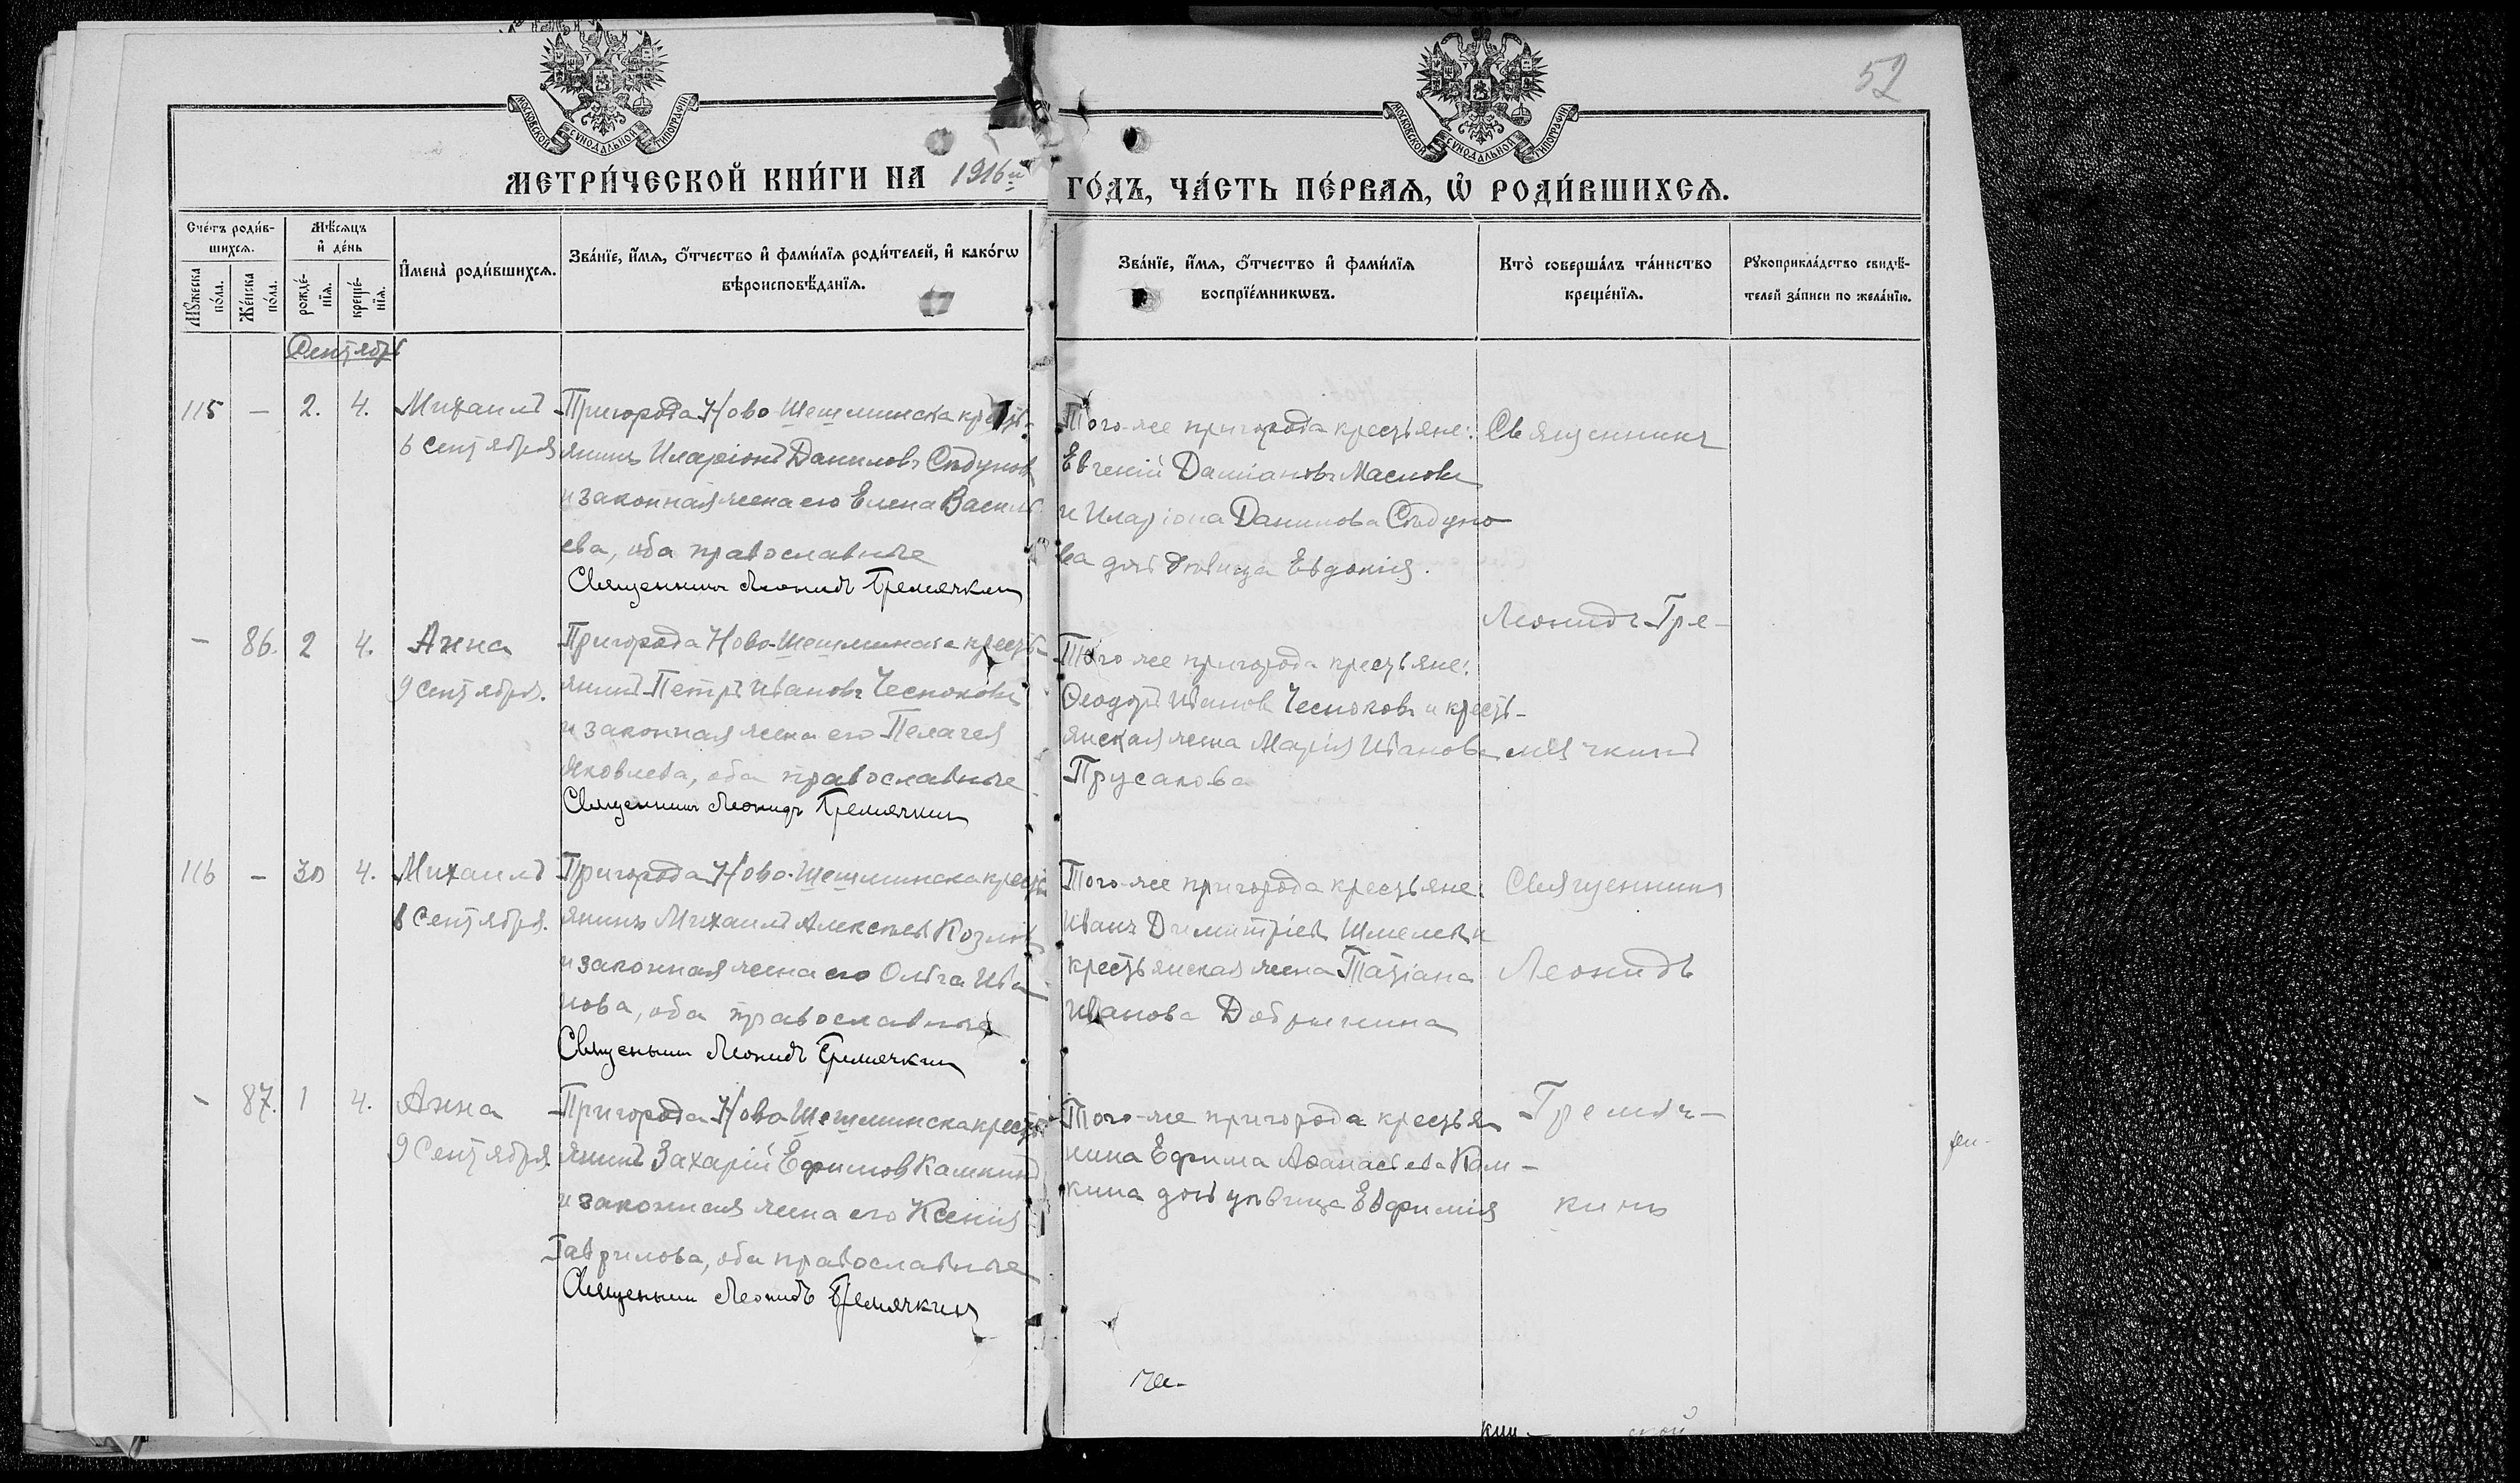 52
МОСКОВСКОЙ СѴНОДАЛЬНОЙ ТИПОГРАФІИ
МОСКОВСКОЙ СѴНОДАЛЬНОЙ ТИПОГРАФІИ
МЕТРИ́ЧЕСКОЙ КНИ́ГИ НА 1916й ГО́ДЪ, ЧА́СТЬ ПЕ́РВАѦ, Ѡ҆ РОДИ́ВШИХСѦ.
Сче́тъ роди́в-
шихсѧ.
Мꙋ́жеска
по́ла.
Же́нска
по́ла.
Мѣ́сѧцъ
и҆ де́нь
рожде́-
нїѧ.
креще́-
нїѧ.
И҆мена̀ роди́вшихсѧ.
Зва́нїе, и҆́мѧ, ѻ҆́тчество и҆ фами́лїѧ роди́телей, и҆ како́гѡ
вѣроисповѣ́данїѧ.
Зва́нїе, и҆́мѧ, ѻ҆́тчество и҆ фами́лїѧ
воспрїе́мникѡвъ.
Кто̀ соверша́лъ та́инство
креще́нїѧ.
Рꙋкоприкла́дство свидѣ́-
телей за́писи по жела́нїю.
Сентябрь
115 – 2. 4. Михаилъ
6 Сентября
Пригорода Ново-Шешминска кресть-
янинъ Иларіонъ Даниловъ Сѣдунов
и законная жена его Елена Василь
ева, оба православные
Священникъ Леонидъ Гремячкин
Того-же пригорода крестьяне:
Евгеній Даміановъ Масловъ
и Иларіона Данилова Сѣдуно
ва дочь дѣвица Евдокія.
Священникъ
Леонидъ Гре-
– 86. 2 4. Анна
9 Сентября.
Пригорода Ново-Шешминска кресть-
янинъ Петръ Ивановъ Чесноковъ
и законная жена его Пелагея
Яковлева, оба православные
Священникъ Леонидъ Гремячкин
Того же пригорода крестьяне:
Ѳеодоръ Иванов Чесноковъ и кресть-
янская жена Марія Иванова
Прусакова
мячкинъ
116 – 30 4. Михаилъ
6 Сентября.
Пригорода Ново-Шешминска кресть
янинъ Михаилъ Алексѣев Козлов
и законная жена его Ольга Ива-
нова, оба православные
Священник Леонидъ Гремячкин
Того-же пригорода крестьяне:
Иванъ Димитріев Шмелевъ и
крестьянская жена Татіана
Иванова Добрынина
Священникъ
Леонидъ
– 87. 1 4. Анна
9 Сентября.
Пригорода Ново-Шешминска кресть
янинъ Захарій Ефимов Камкинъ
и законная жена его Ксенія
Гаврилова, оба православные
Священник Леонидъ Гремячкин
Того-же пригорода крестья
нина Ефима Аѳанасьева Кам-
кина дочь дѣвица Евфимія
Гремяч-
кинъ
кин-
ской